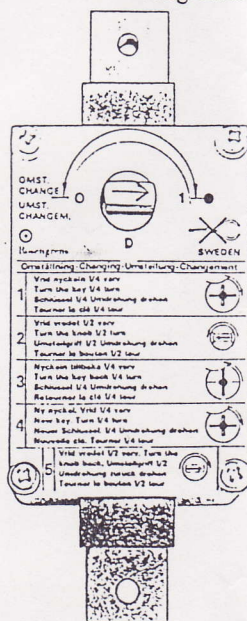 OMST.
CHANGE
UMST.
CHANGEM.
0
1
D
SWEDEN
Omställning-Changing-Umstellung-Changement
1
Vrid nyckeln 1/4 varv
Turn the key 1/4 turn
Schlüssel 1/4 Umdrehung drehen
Tourner la clé 1/4 tour
2
Vrid vredet 1/2 varv
Turn the knob 1/2 turn
Umstellgriff 1/2 Umdrehung drehen
Tourner le bouton 1/2 tour
3
Nyckeln tillbaka 1/4 varv
Turn the key back 1/4 turn
Schlüssel 1/4 Umdrehung drehen
Retourner la clé 1/4 tour
4
Ny nyckel. Vrid 1/4 varv
New key. Turn 1/4 turn
Neuer Schlüssel 1/4 Umdrehung drehen
Nouvelle clé. Tourner 1/4 tour
5
Vrid vredet 1/2 varv. Turn the
knob back. Umstellgriff 1/2
Umdrehung zurück drehen
Tourner le bouton 1/2 tour